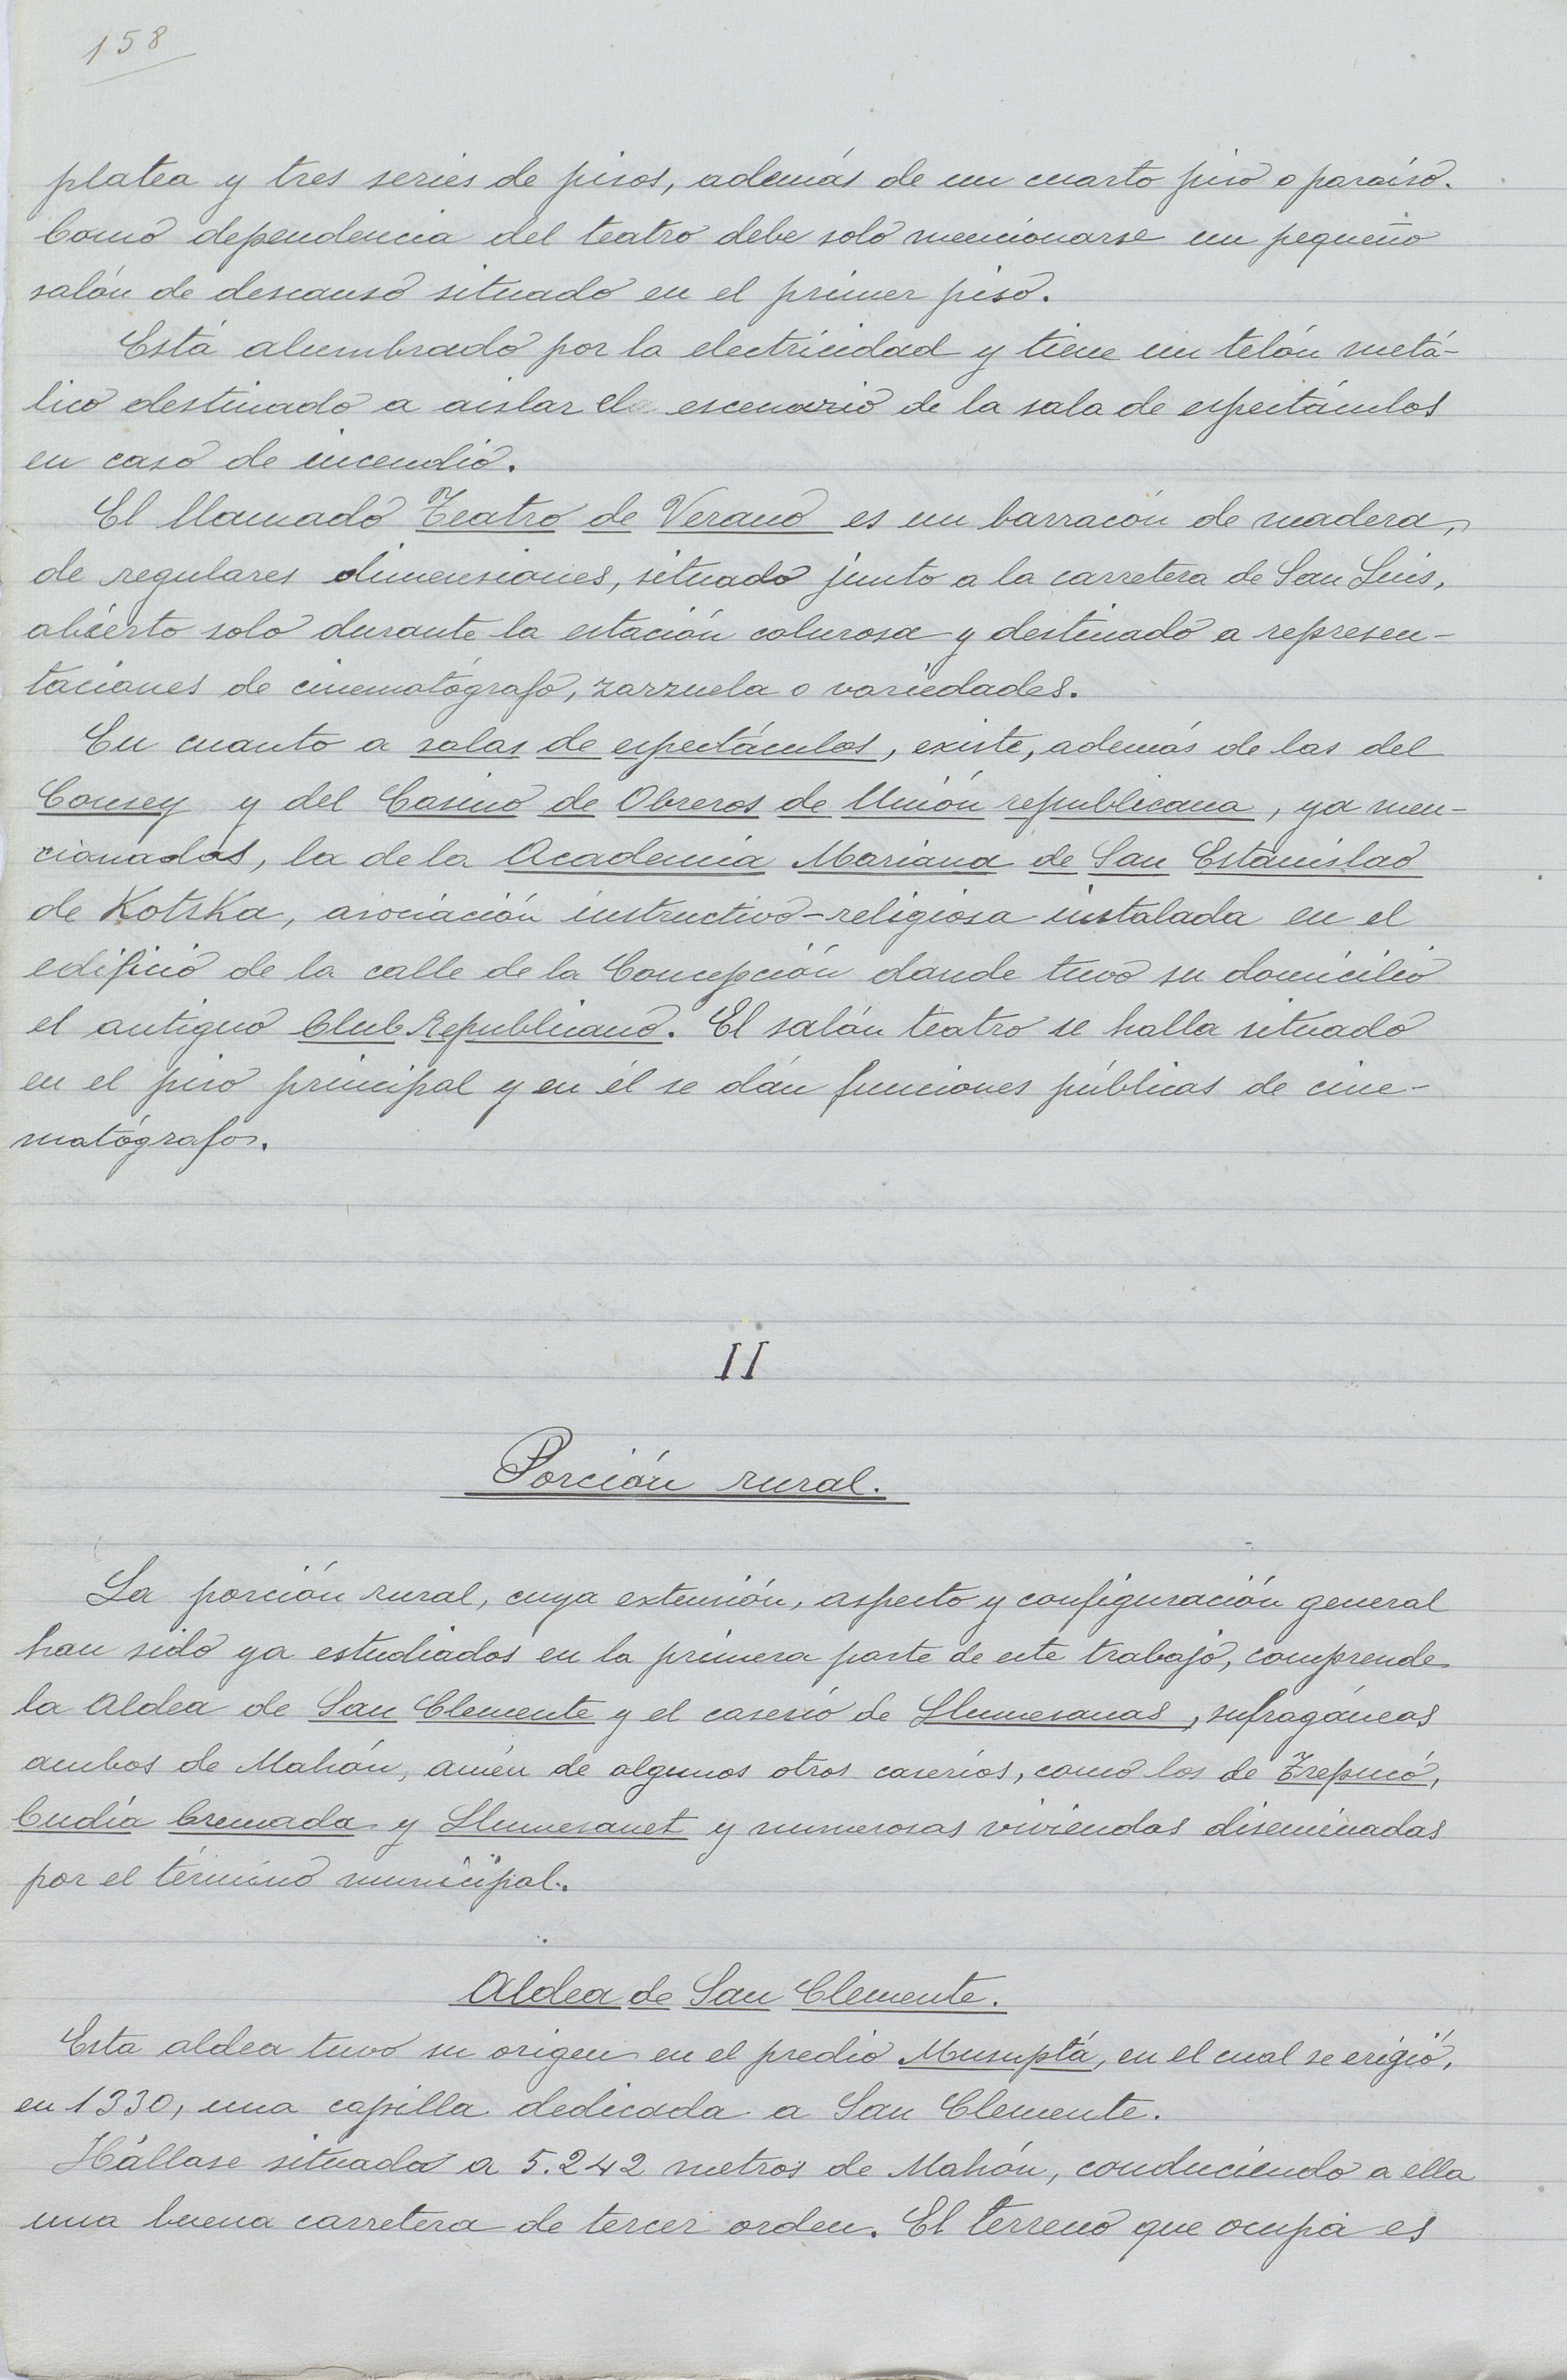 158
platea y tres series de pisos, además de un cuarto piso o paraiso.
Como dependencia del teatro debe solo mencionarse un pequeño
salón de descanso situado en el primer piso.
Está alumbrado por la electricidad y tiene un telón metá-
lico destinado a aislar el escenario de la sala de espectáculos
en caso de incendio.
El llamado Teatro de Verano es un barracón de madera,
de regulares dimensiones, situado junto a la carretera de San Luis,
abierto solo durante la estación calurosa y destinado a represen-
taciones de cinematógrafo, zarzuela o variedades.
En cuanto a salas de espectáculos, existe, además de las del
Consey y del Casino de Obreros de Unión republicana, ya men-
cionadas, la de la Academia Mariana de San Estanislao
de Kotska, asociación instructivo-religiosa instalada en el
edificio de la calle de la Concepción donde tuvo su domicilio
el antiguo Club Republicano. El salón teatro se halla situado
en el piso principal y en él se dán funciones públicas de cine-
matógrafo.
II
Porción rural.
La porción rural, cuya extensión, aspecto y configuración general
han sido ya estudiados en la primera parte de este trabajo, comprende
la Aldea de San Clemente y el caserío de Llumesanas, sufragáneas
ambos de Mahón, amén de algunos otros caseríos, como los de Trepucó,
Cudía Cremada y Llumesanet y numerosas viviendas diseminadas
por el término municipal.
Aldea de San Clemente.
Esta aldea tuvo su origen en el predio Musuptá, en el cual se erigió,
en 1330, una capilla dedicada a San Clemente.
Hállase situada a 5.242 metros de Mahón, conduciendo a ella
una buena carretera de tercer orden. El terreno que ocupa es